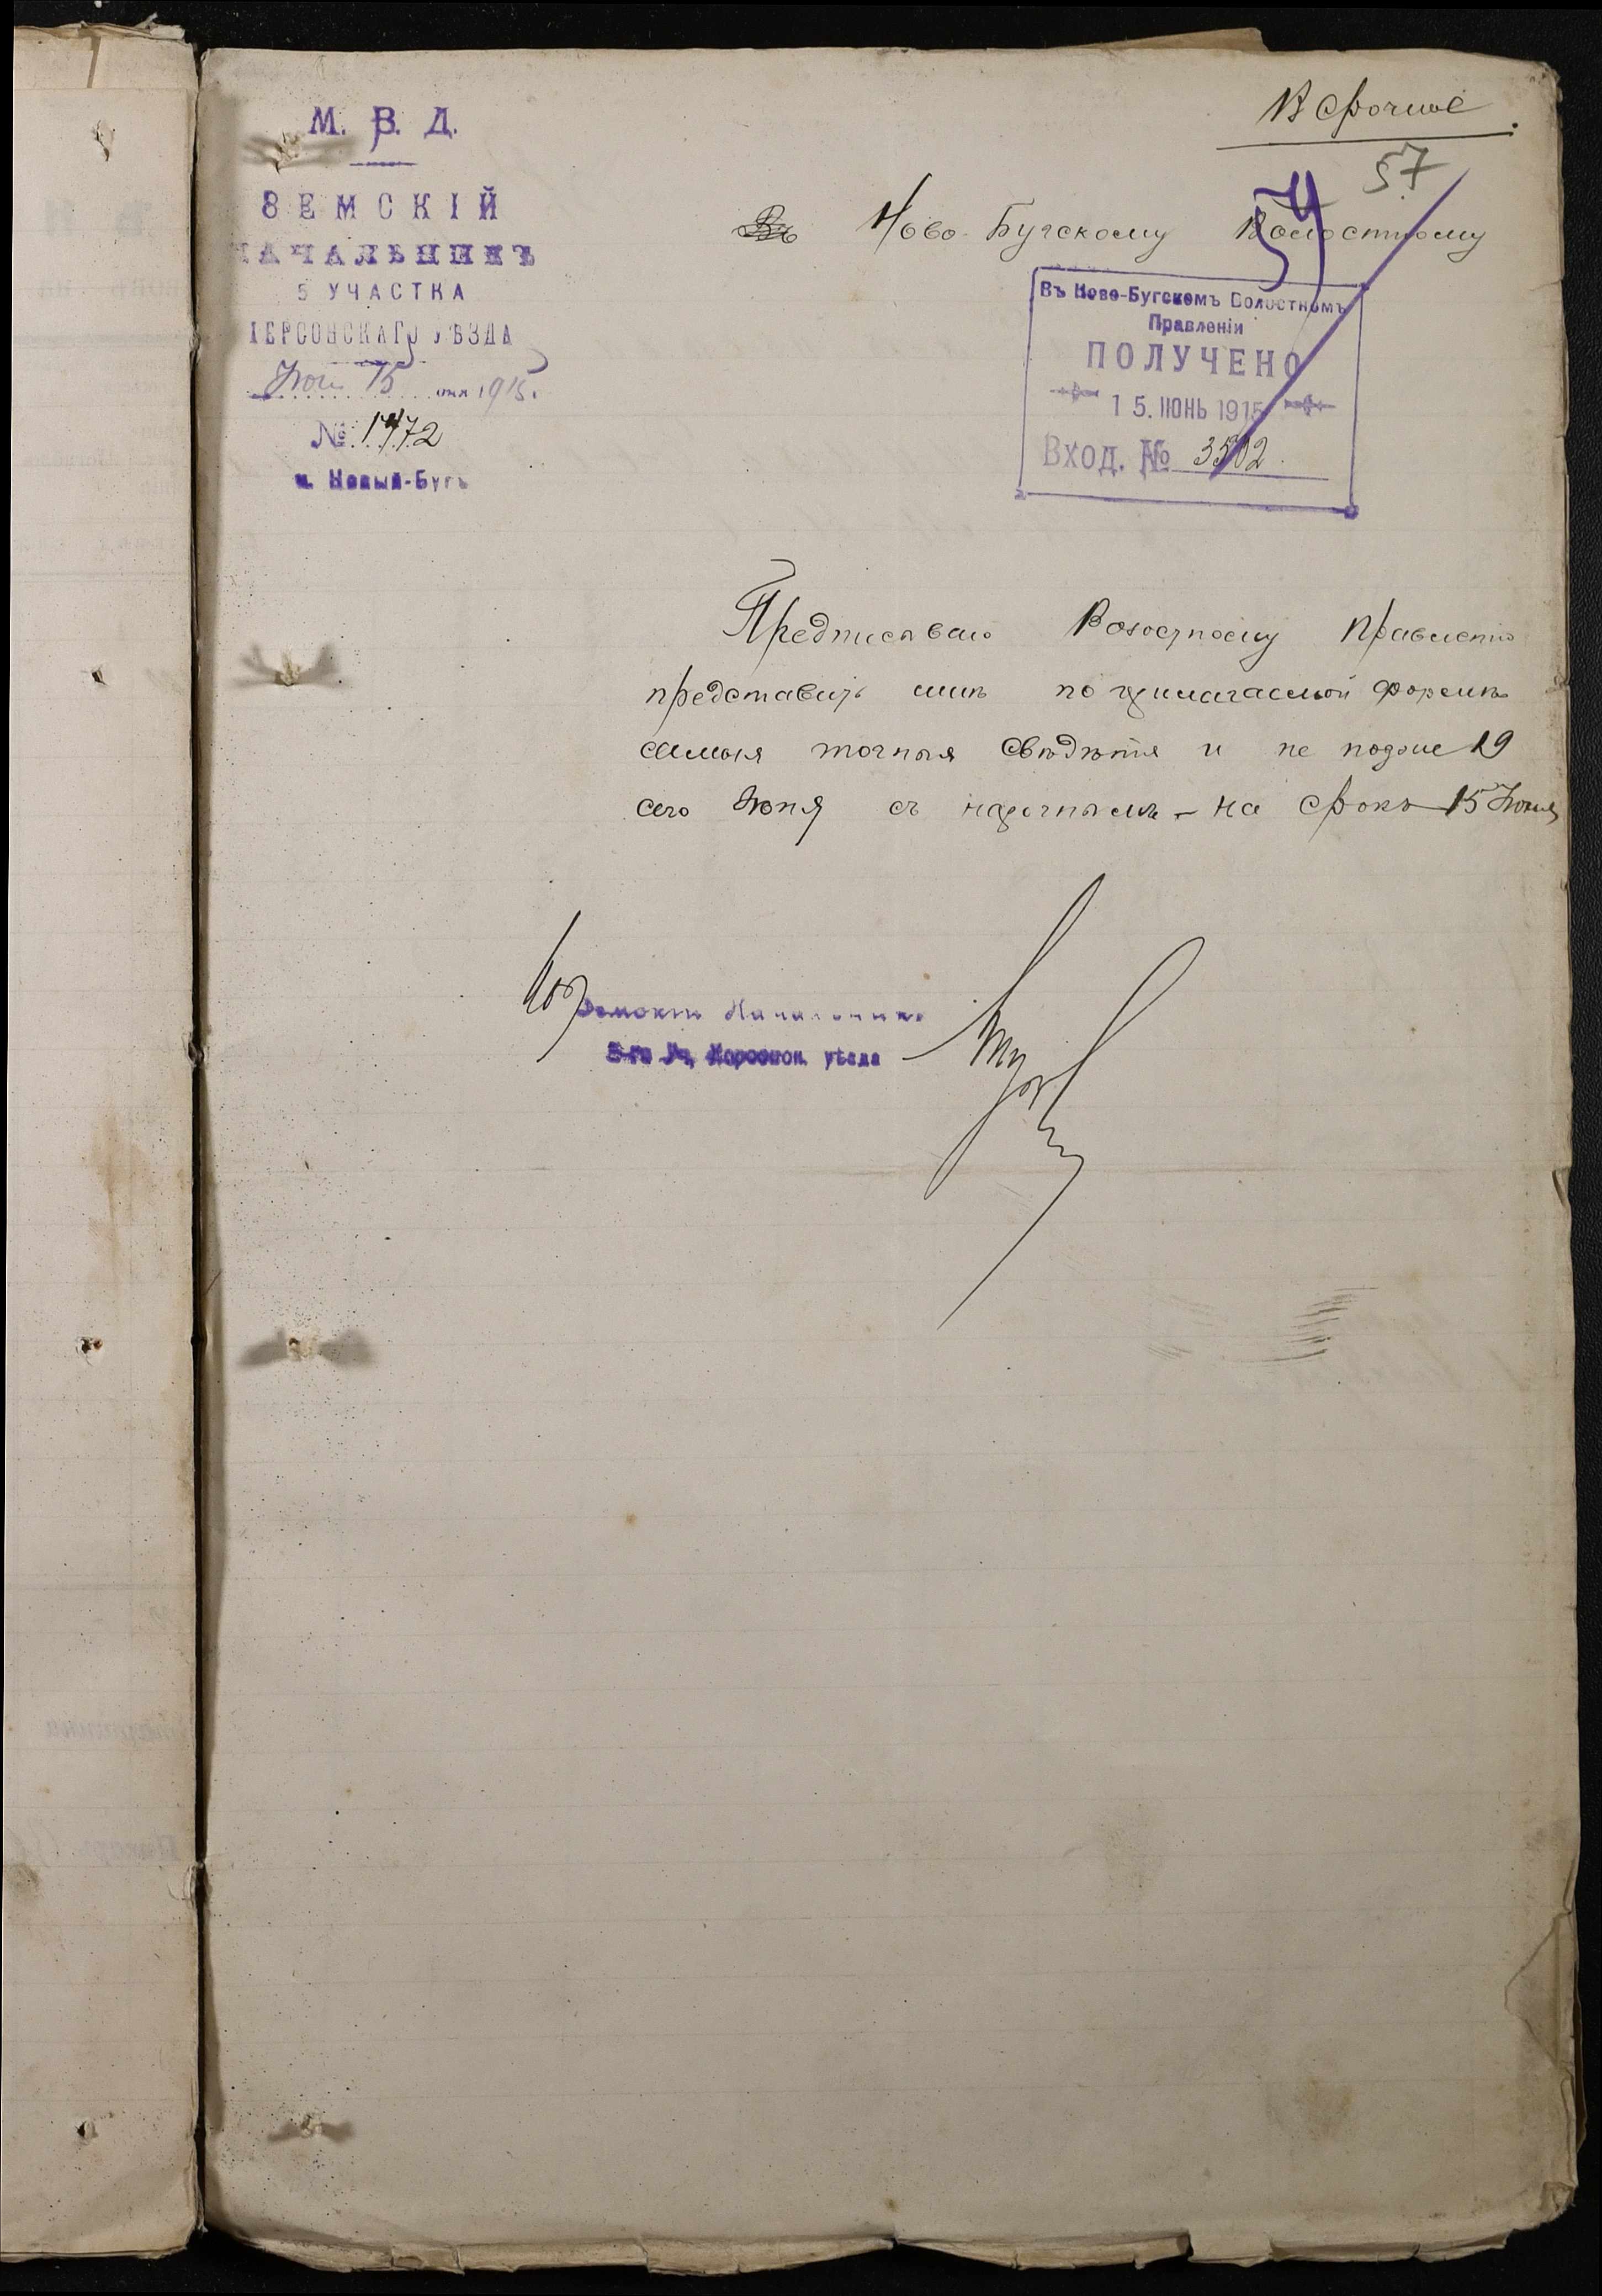 М. В. Д.
ЗЕМСКІЙ
НАЧАЛЬНИКЪ
5 УЧАСТКА
ХЕРСОНСКАГО УѢЗДА
15 дня 1915 г.
№ 1472
м. Новый-Бугъ
Срочное
57
54
Въ Ново-Бугскому Волостному
Въ Ново-Бугскомъ Волостномъ
Правленіи
ПОЛУЧЕНО
15. ІЮНЬ 1915
Вход. № 3502
Предписываю Волостному Правленію
представить мнѣ по прилагаемой формѣ
самыя точныя свѣдѣнія и не позже 19
сего Іюня съ нарочнымъ – на срокъ 15 Іюня
Земскій Начальникъ
5-го Уч. Херсонск. уѣзда